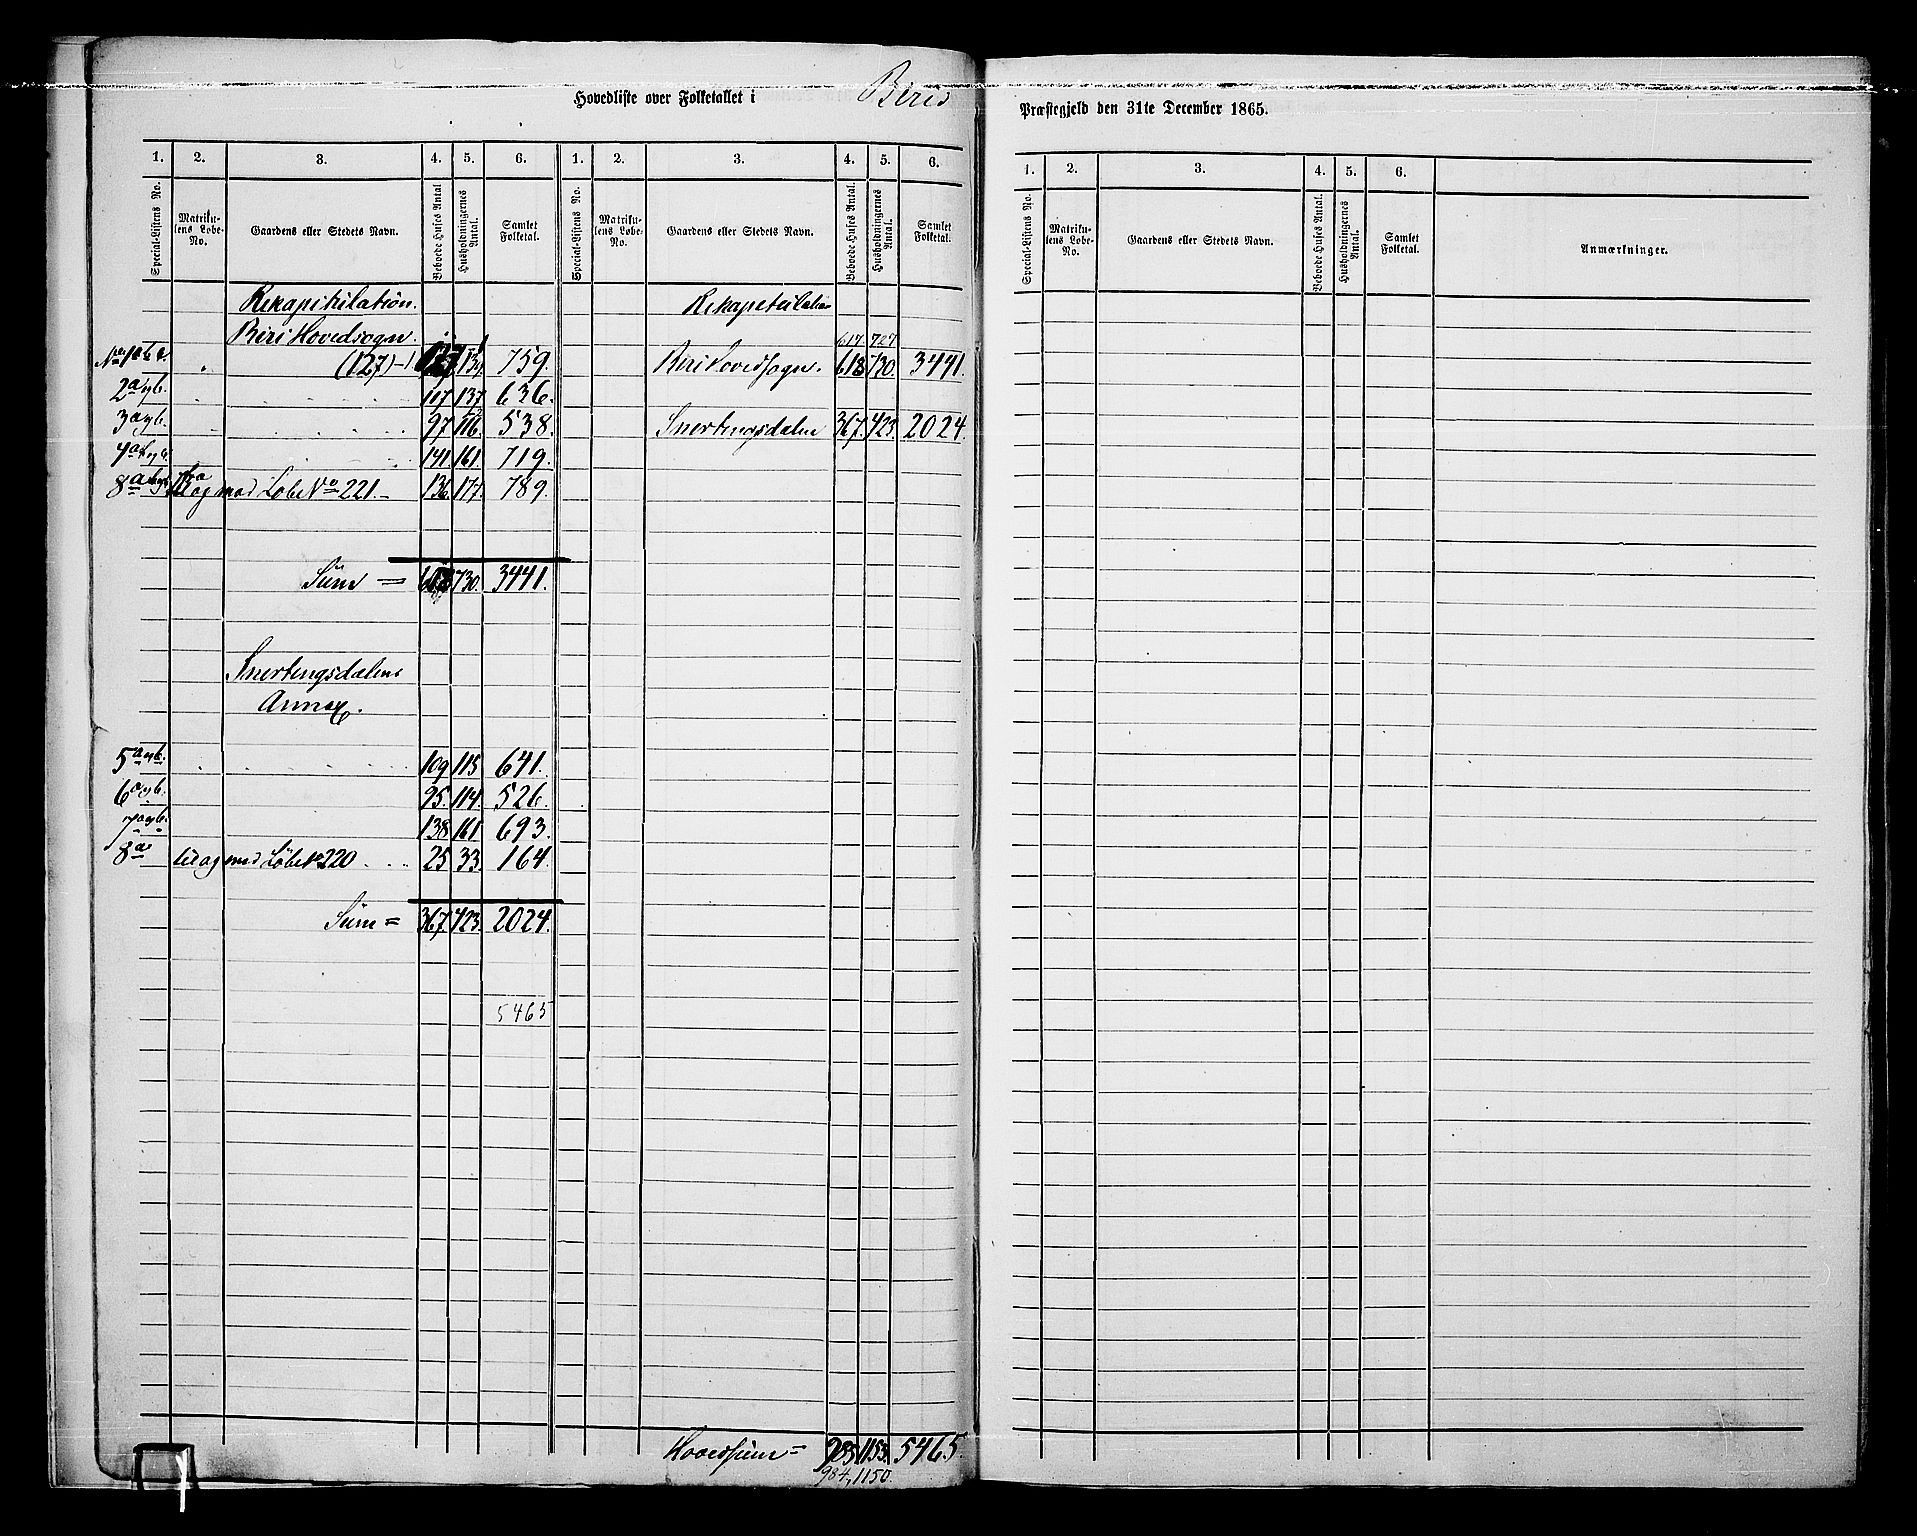 Hovedliste over Folketallet i Biris
Præstegjeld den 31te December 1865.
1. 2. 3. 4. 5. 6. 1. 2. 3. 4. 5. 6.
Special-Listens No. Matrikulens Løbe-No. Gaardens eller Stedets Navn. Beboede Huses Antal Husholdningernes Antal. Samlet Folketal. Special-Listens No. Matrikulens Løbe-No. Gaardens eller Stedets Navn. Beboede Huses Antal. Husholdningernes Antal. Samlet Folketal.
Rekapitulation.
Biri Hovedsogn.
(127) 759.
2a og b. 107 137 636.
3a og b. 97 116. 538.
4a og b. 141 161. 719.
8a og b. med Løbe No 221. 136. 177. 789.
Sum = 618 730. 3441.
Snertingsdalens
Annex.
5a og b. 109 115 641.
6a og b. 95. 114. 526.
7a og b. 138 161 693.
8a til og med Løbe No 220 25 33. 164.
Sum = 367 423. 2024.
5465
Rekapitulation
617 727
Biri Hovedsogn. 618 730. 3441.
Snertingsdalen 367. 423. 2024.
Hovedsum = 985 1153. 5465.
984, 1150.
1. 2. 3. 4. 5. 6.
Special-Listens No. Matrikulens Løbe-No. Gaardens eller Stedets Navn. Beboede Huses Antal. Husholdningernes Antal. Samlet Folketal. Anmærkninger.